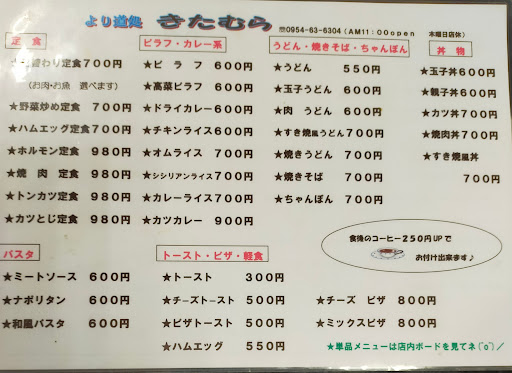 より道処 きたむら
☎0954-63-6304 (AM11:00open 木曜日店休)
定食
替わり定食700円
(お肉・お魚 選べます)
★野菜炒め定食 700円
★ハムエッグ定食700円
★ホルモン定食 980円
★焼 肉 定食 980円
★トンカツ定食 980円
★カツとじ定食 980円
ピラフ・カレー系
★ピ ラ フ 600円
★高菜ピラフ 600円
★ドライカレー 600円
★チキンライス 600円
★オムライス 700円
★シシリアンライス 700円
★カレーライス 700円
★カツカレー 900円
うどん・焼きそば・ちゃんぽん
★うどん 550円
★玉子うどん 600円
★肉 うどん 600円
★すき焼風うどん 700円
★焼きうどん 700円
★焼きそば 700円
★ちゃんぽん 700円
丼物
★玉子丼600円
★親子丼600円
★カツ丼700円
★焼肉丼700円
★すき焼風丼
700円
食後のコーヒー250円UPで
お付け出来ます♪
パスタ
★ミートソース 600円
★ナポリタン 600円
★和風パスタ 600円
トースト・ピザ・軽食
★トースト 300円
★チーズトースト 500円
★ピザトースト 500円
★ハムエッグ 550円
★チーズ ピザ 800円
★ミックスピザ 800円
★単品メニューは店内ボードを見てネ(^o^)/